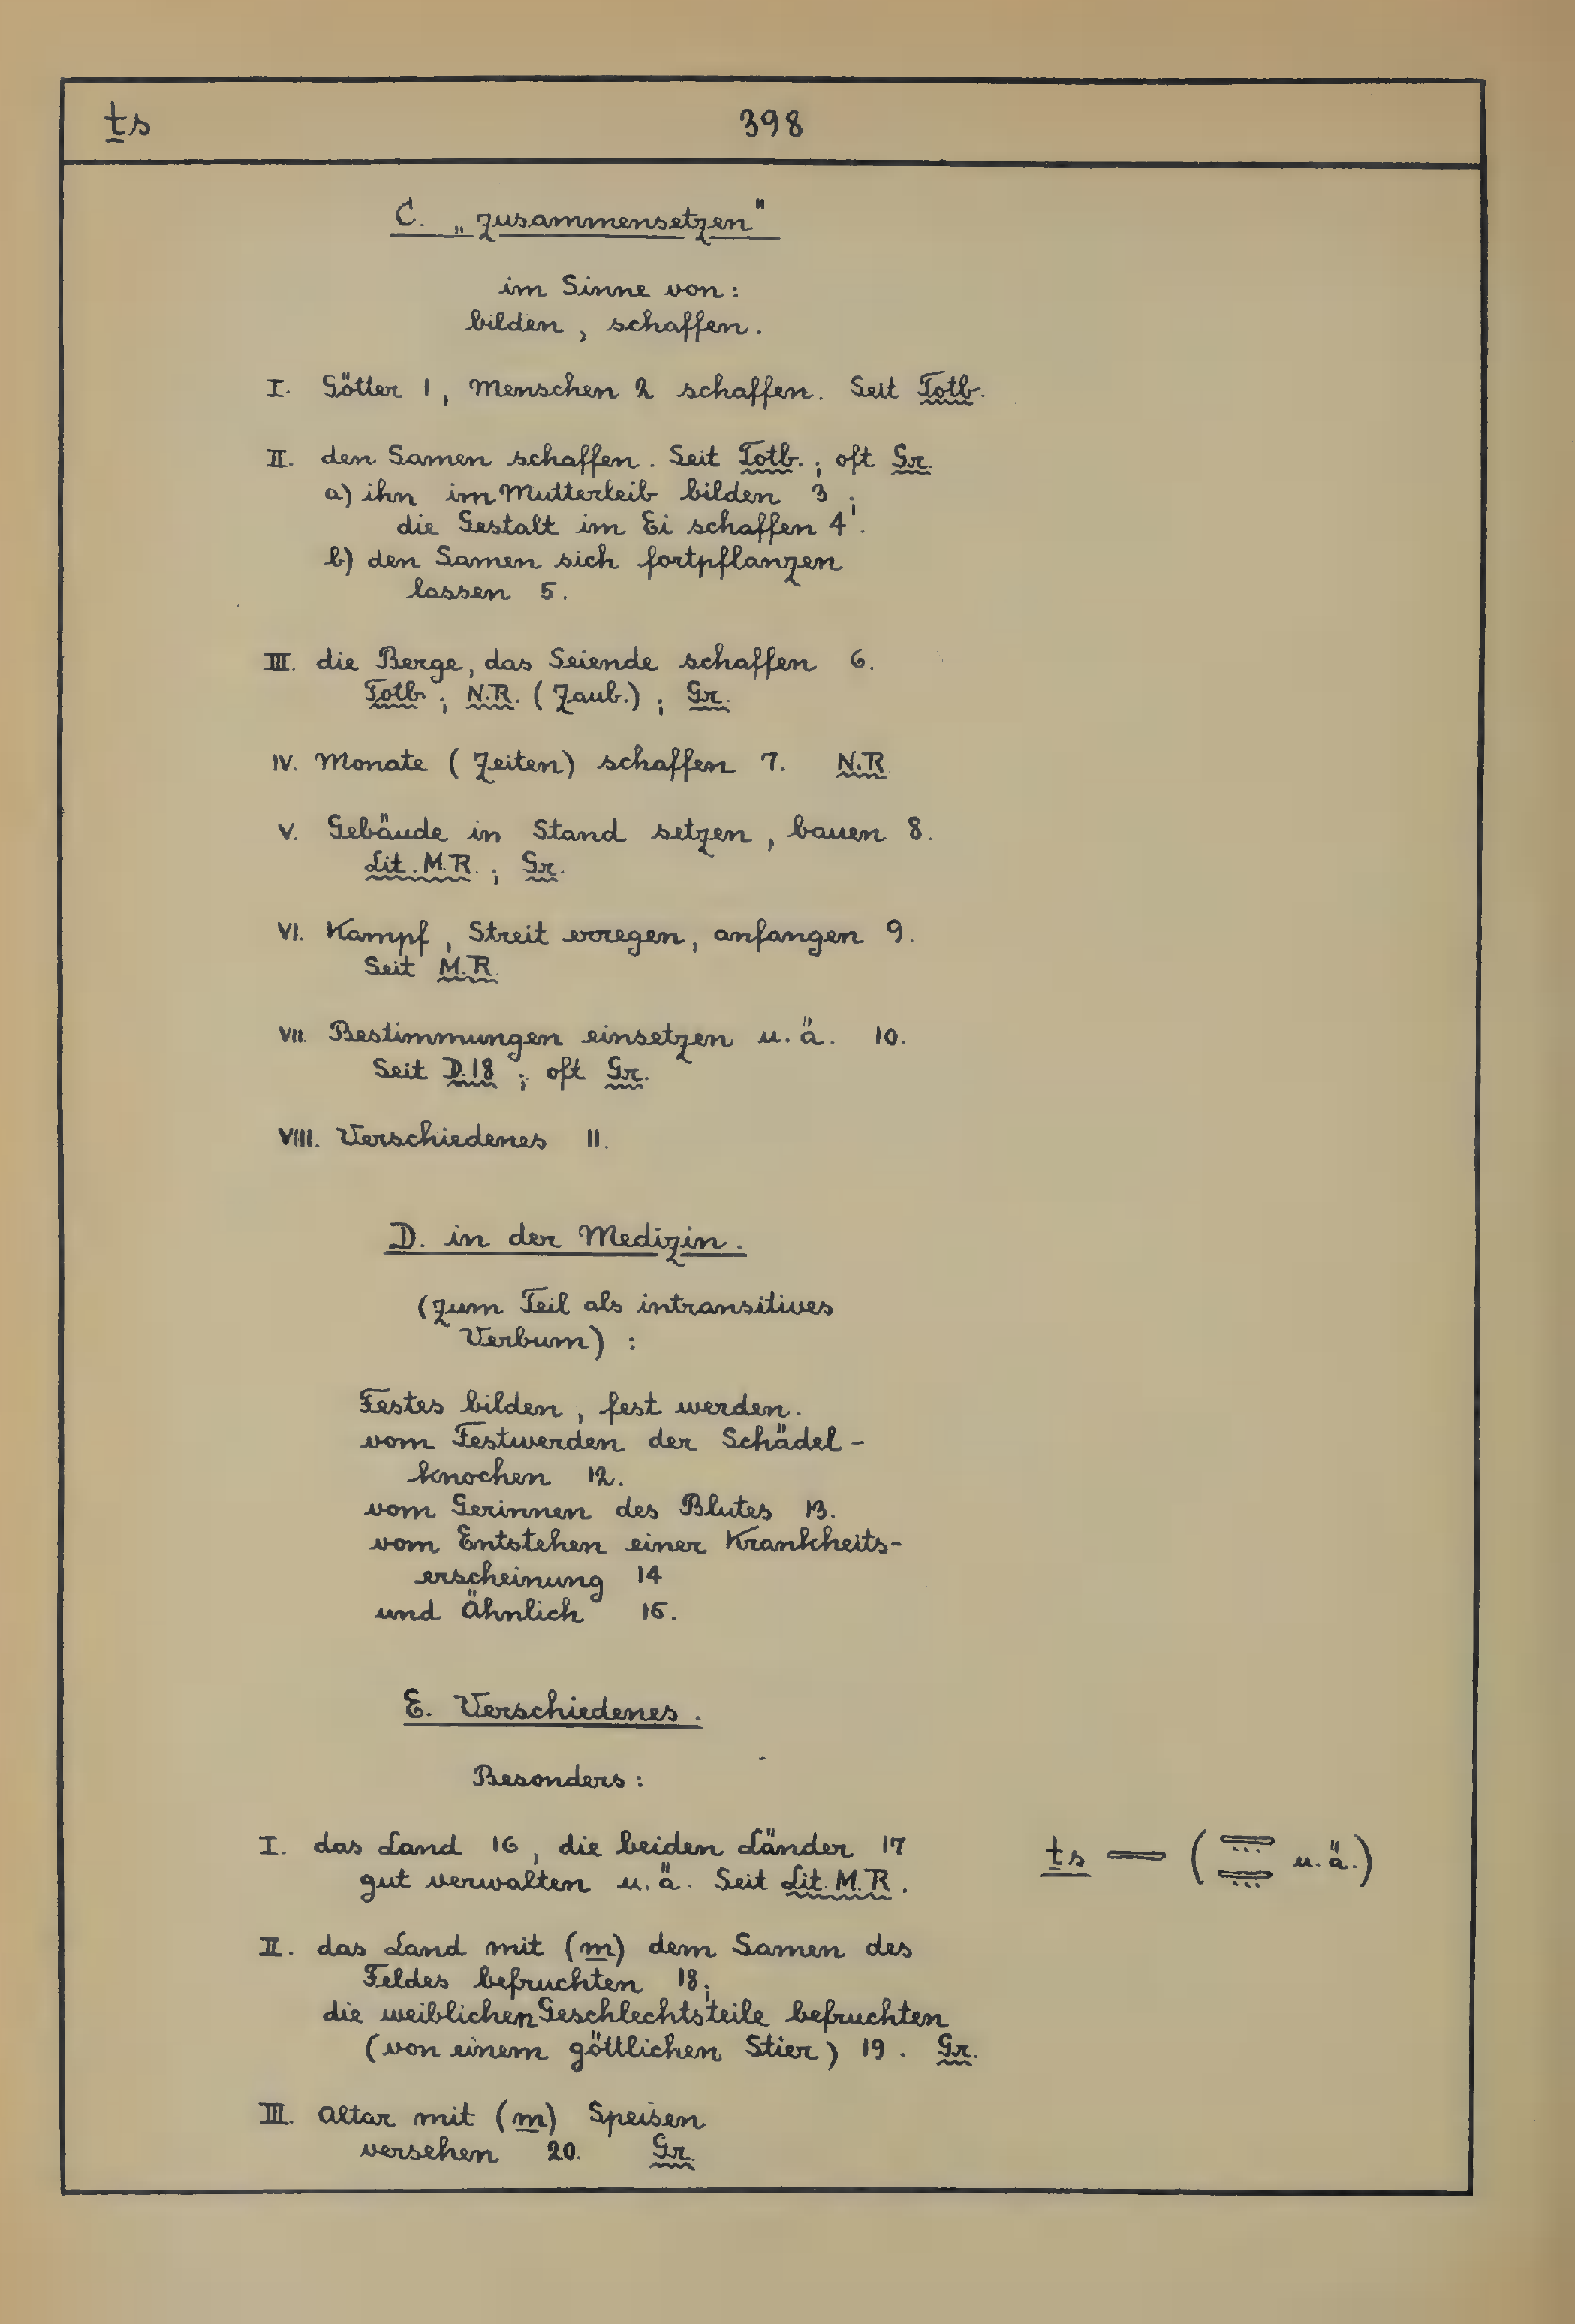 ṯs 398
C. „zusammensetzen"
im Sinne von:
bilden, schaffen.
I. Götter 1, Menschen 2 schaffen. Seit Totb.
II. den Samen schaffen. Seit Totb.; oft Gr.
a) ihn im Mutterleib bilden 3;
die Gestalt im Ei schaffen 4.
b) den Samen sich fortpflanzen
lassen 5.
III. die Berge, das Seiende schaffen 6.
Totb.; N.R. (Zaub.); Gr.
IV. Monate (Zeiten) schaffen 7. N.R.
V. Gebäude in Stand setzen, bauen 8.
Lit. M.R.; Gr.
VI. Kampf, Streit erregen, anfangen 9.
Seit M.R.
VII. Bestimmungen einsetzen u.ä. 10.
Seit D.18; oft Gr.
VIII. Verschiedenes 11.
D. in der Medizin.
(zum Teil als intransitives
Verbum):
Festes bilden, fest werden.
vom Festwerden der Schädel-
knochen 12.
vom Gerinnen des Blutes 13.
vom Entstehen einer Krankheits-
erscheinung 14
und Ähnlich 15.
E. Verschiedenes.
Besonders:
I. das Land 16, die beiden Länder 17 ṯs 𓇿 (𓇿𓇿 u.ä.)
gut verwalten u.ä. Seit Lit. M.R.
II. das Land mit (m) dem Samen des
Feldes befruchten 18;
die weiblichen Geschlechtsteile befruchten
(von einem göttlichen Stier) 19. Gr.
III. Altar mit (m) Speisen
versehen 20. Gr.